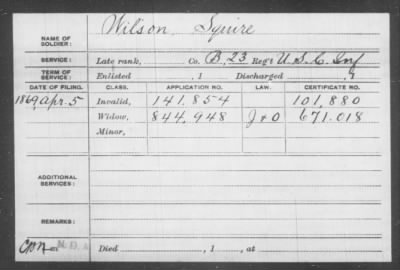 Wilson, Squire
NAME OF SOLDIER:
SERVICE: Late rank, Co. B, 23 Reg't U.S.C. Inf
TERM OF SERVICE: Enlisted , 1 Discharged , 1
DATE OF FILING. CLASS. APPLICATION NO. LAW. CERTIFICATE NO.
1869, Apr. 5 Invalid, 141,854 101,880
Widow, 844,948 J & O 671.018
Minor,
ADDITIONAL SERVICES:
REMARKS:
Died , 1 , at